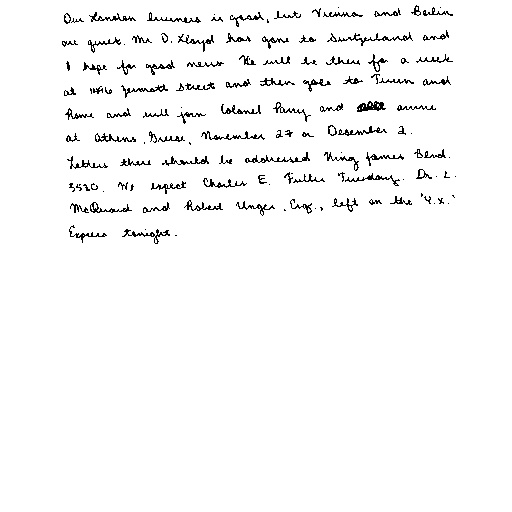 Our London business is good, but Vienna and Berlin
are quiet. Mr. D. Lloyd has gone to Switzerland and
I hope for good news. He will be there for a week
at 1496 Zermott Street and then goes to Turin and
Rome and will join Colonel Parry and arrive
at Athens, Greece, November 27 or December 2.
Letters there should be addressed King James Blvd.
3580. We expect Charles E. Fuller Tuesday. Dr. L.
McQuaid and Robert Unger, Esq., left on the "Y.X."
Express tonight.